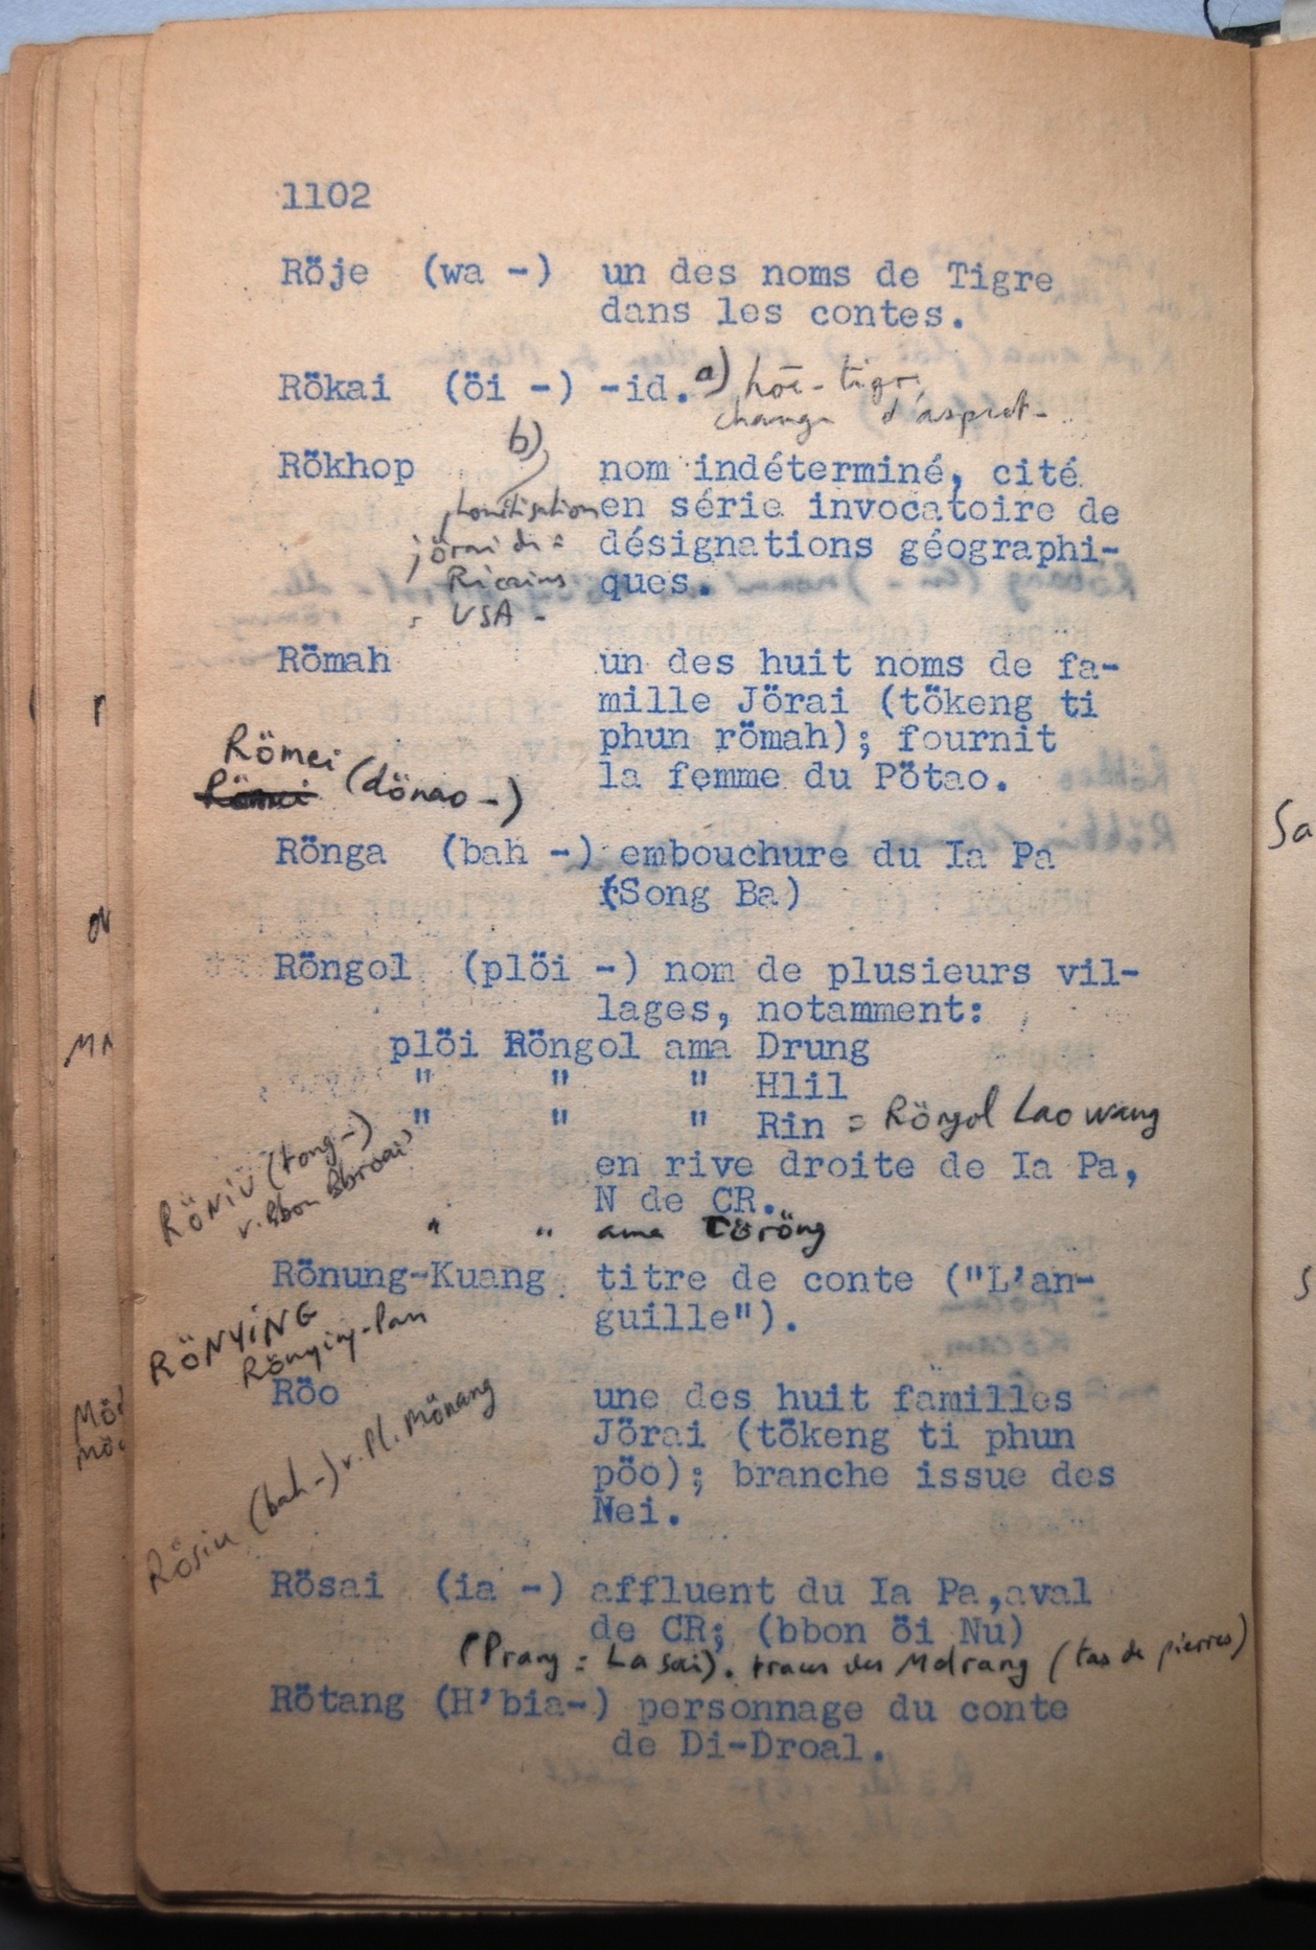 1102
Röje (wa -) un des noms de Tigre
dans les contes.
Rökai (öi -) -id. a)
d'aspect -
b)
Rökhop nom indéterminé, cité
en série invocatoire de
jörai di = désignations géographi-
Ricains ques.
USA -
Römah un des huit noms de fa-
mille Jörai (tökeng ti
phun römah); fournit
la femme du Pötao.
Römei (dönao -)
Rönga (bah -) embouchure du Ia Pa
(Song Ba)
Röngol (plöi -) nom de plusieurs vil-
lages, notamment:
plöi Röngol ama Drung
" " " Hlil
" " " Rin = Röngol Lao wang
en rive droite de Ia Pa,
N de CR.
" " ama Töröng
RÖNiU (tong -)
v. Bbon Bbroai
Rönung-Kuang titre de conte ("L'an-
guille").
RÖNYiNG
Rönying-Pan
Röo une des huit familles
Jörai (tökeng ti phun
pöo); branche issue des
Nei.
Rösiu (bah -) v. Pl. Mönang
Rösai (ia -) affluent du Ia Pa, aval
de CR; (bbon öi Nu)
(Prang = La Sai). traces des Mdrang (tas de pierres)
Rötang (H'bia-) personnage du conte
de Di-Droal.